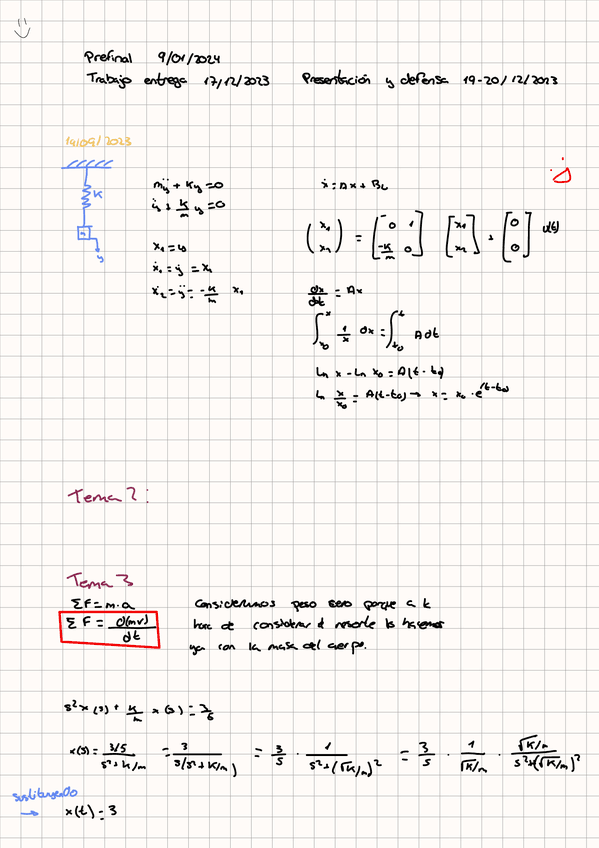 Prefinal 9/01/2024
Trabajo entrega 17/12/2023 Presentación y defensa 19-20/12/2023
14/09/2023
K
m
y
mÿ + Ky = 0
ÿ + K/m y = 0
ẋ = Ax + Bu
(x₁ x₂) = [0 1 -K/m 0] [x₁ x₂] + [0 0] u(t)
x₁ = y
ẋ₁ = ẏ = x₂
ẋ₂ = ÿ = -K/m x₁
dx/dt = Ax
∫x₀^x 1/x dx = ∫t₀^t A dt
Ln x - Ln x₀ = A(t - t₀)
Ln x/x₀ = A(t-t₀) → x = x₀ · e^(t-t₀)
Tema 2:
Tema 3
ΣF = m·a
ΣF = d(mv)/dt
Consideramos peso cero porque a
hora de considerar el resorte lo hacemos
ya con la masa del cuerpo.
s²x(s) + K/m x(s) = 3/s
x(s) = 3/s / s² + K/m = 3 / s(s² + K/m) = 3/s · 1 / s² + (√K/m)² = 3/s · 1/√K/m · √K/m / s² + (√K/m)²
sustituyendo
→ x(t) = 3